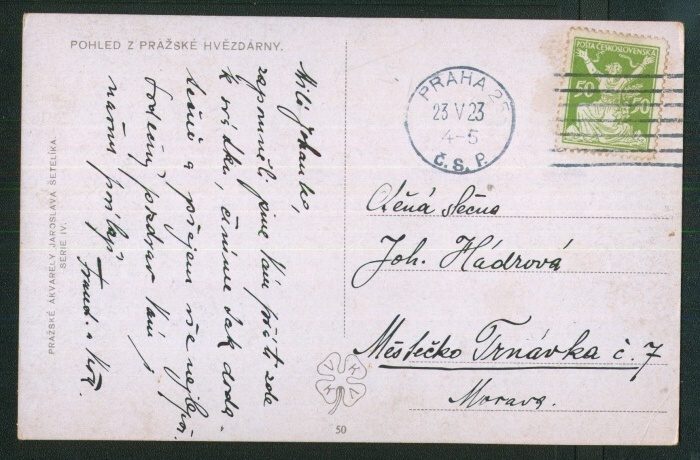 POHLED Z PRAŽSKÉ HVĚZDÁRNY.
PRAŽSKÉ AKVARELY JAROSLAVA ŠETELÍKA.
SERIE IV.
Milá Johanko,
zapomněli jsme Vám přát zde
k svátku, činíme tak doda-
tečně a přejem vše nejlep.
Srdečný pozdrav Vám
Frant. a
PRAHA 25
23 V 23
4-5
Č.S.P.
POŠTA ČESKOSLOVENSKÁ
50 50
Ctěná slečna
Joh. Hádrová
Městečko Trnávka č. 7
Morava.
V K K V
50